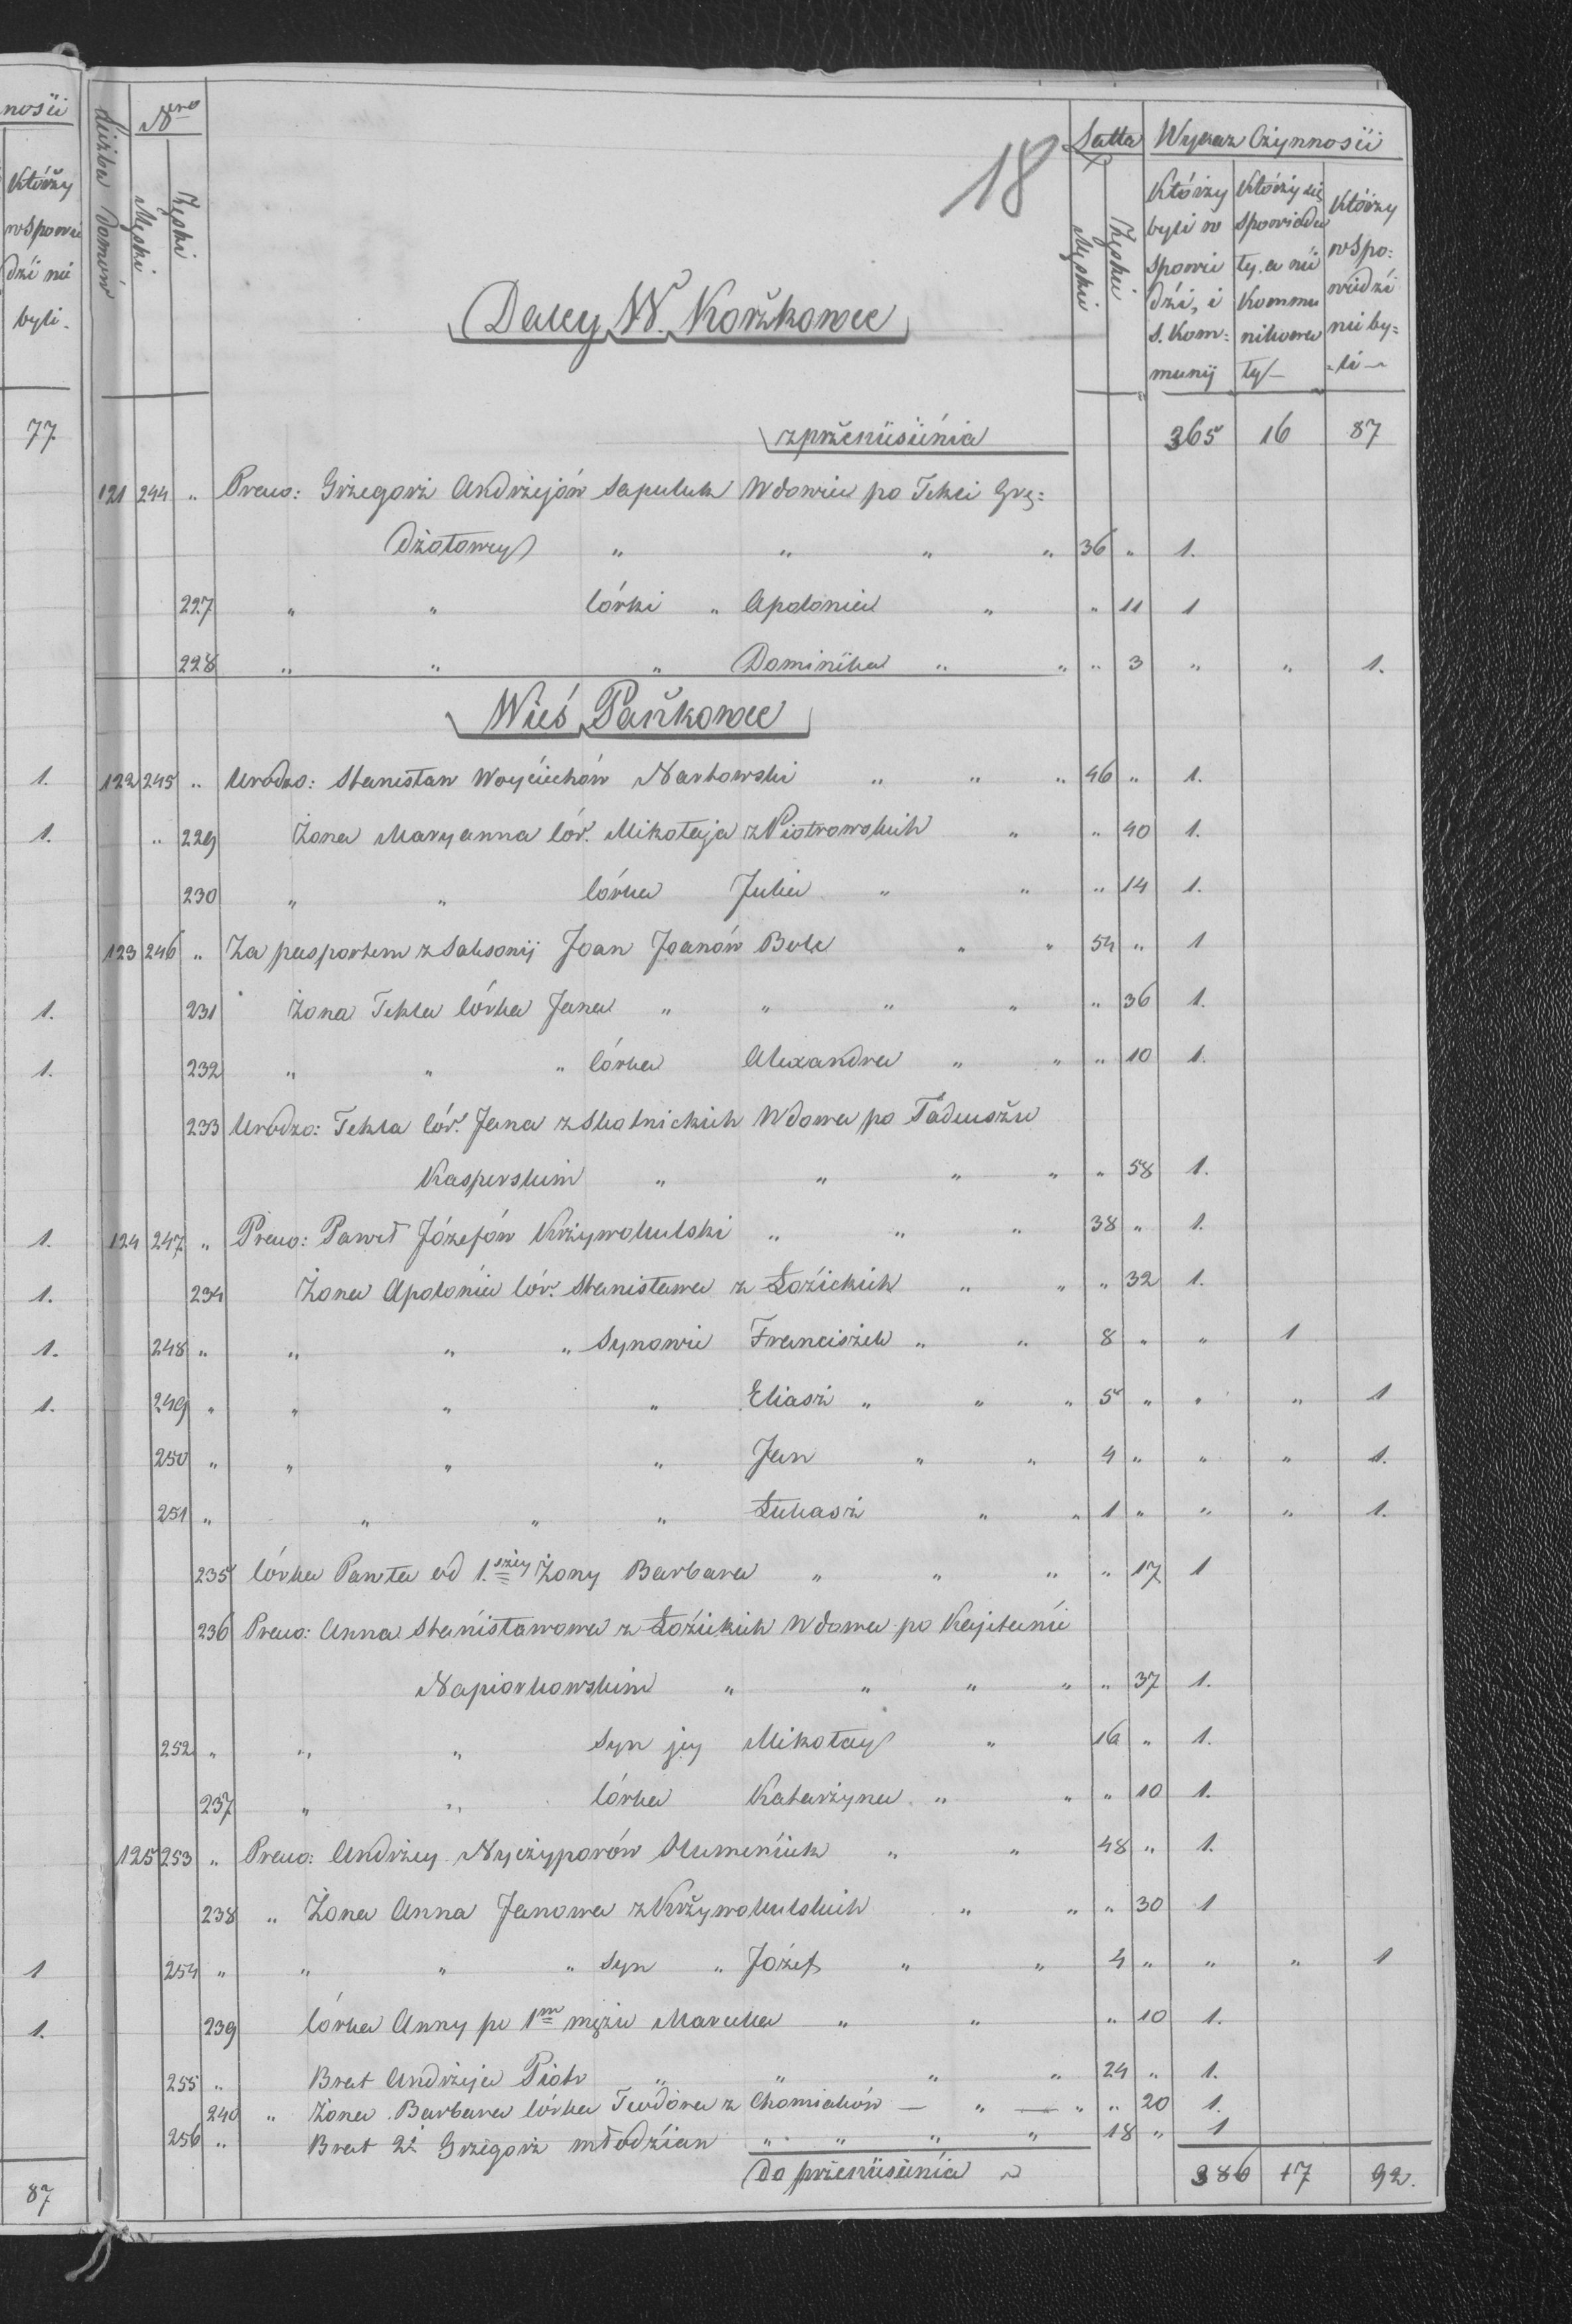 nośii
Którży
w Spowie
dźi nie
byli.
77
1.
1.
1.
1.
1.
1.
1.
1.
1
1.
87
Liczba Domów
Nero
Męski
Zęski
18
Latta
Męskie
Zęskie
Wykaz Czynnośii
Którży byli w Spowiedźi, i S. Kommunij
Którży się Spowiadali, a nie Kommunikowali
Którży w Spowiedźi nie byli
Daley W. Korżkowce
z prżeniesienia 365 16 87
121 244 " Praco: Grżegorż Andrżejów Sapuluk Wdowiec po Tekli Grę=
Dżołowey " " " " 36 " 1.
227 " " Córki " Apolonia " " 11 1
228 " " " Dominika " " " 3 " " 1.
Wieś Pańkowce
122 245 " Urodzo: Stanisław Woyćiechów Narkowski " " " 46 " 1.
" 229 Żona Maryanna Cór. Mikołaja z Piotrowskich " " 40 1.
230 " " Córka Julia " " " 14 1.
123 246 " Za paszportem z Saksonij Joan Joanów " " 54 " 1
231 Żona Tekla Córka Jana " " " " " 36 1.
232 " " " Córka Alexandra " " " 10 1.
233 Urodzo: Tekla Cór. Jana z Skolnickich Wdowa po Tadeuszu
Kasperskim " " " " " 58 1.
124 247 " Praco: Paweł Józefów Krżywokulski " " " 38 " 1.
234 Żona Apolónia Cór. Stanisława z Łoźickich " " " 32 1.
248 " " " " Synowie Franciszek " " 8 " " 1
249 " " " " Eliasż " " " 5 " " " 1
250 " " " " Jan " " 4 " " " 1.
251 " " " " Łukasż " " 1 " " " 1.
235 Córka Pawła od 1.szey Żony Barbara " " " " 17 1
236 Praco: Anna Stanisławowa z Łoźickich Wdowa po Kajetanie
Napiorkowskim " " " " " 37 1.
252 " " " Syn jey Mikołay " 16 " 1.
237 " " Córka Katarżyna " " " 10 1.
125 253 " Praco: Andrżey Nyczyporów Humeniuk " " 48 " 1.
238 " Żona Anna Janowa z Krżywokulskich " " " 30 1
254 " " " " Syn " Józef " " 4 " " " 1
239 Córka Anny po 1m mężu Marcella " " " 10 1.
255 " Brat Andrżeja Piotr " " " " 24 " 1.
240 " Żona Barbara Córka Teodora z Chomiaków — " — " " 20 1.
256 " Brat 2i Grżegorż młodźian " " " " 18 " 1
Do prżeniesienia 386 17 92.